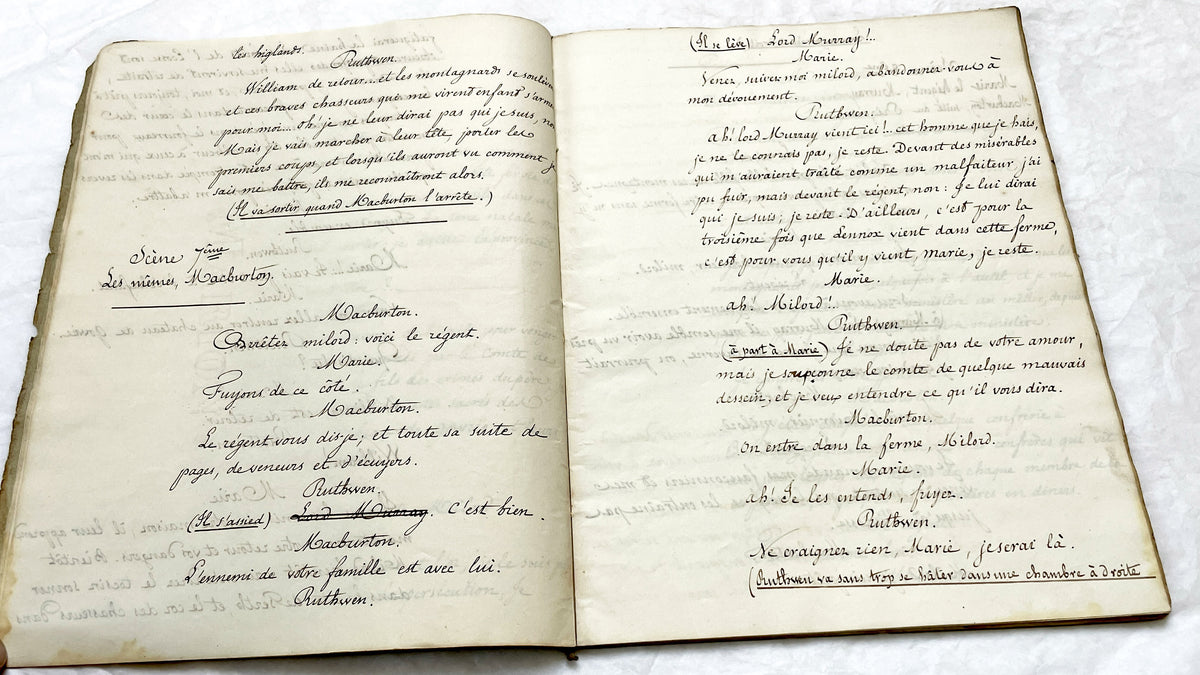 les higlands.
Ruthwen.
William de retour... et les montagnards se soulèvent
et ces braves chasseurs qui me virent enfant s'arment
pour moi... Oh! je ne leur dirai pas qui je suis, non
Mais je vais marcher à leur tête, porter les
premiers coups, et lorsqu'ils auront vu comment je
sais me battre, ils me reconnaîtront alors.
(Il va sortir quand Macburton l'arrête.)
Scène 7ème
Les mêmes, Macburton.
Macburton.
Arrêtez milord: voici le régent.
Marie.
Fuyons de ce côté.
Macburton.
Le régent vous dis-je; et toute sa suite de
pages, de veneurs et d'écuyers.
Ruthwen.
(Il s'assied) Lord Murray. C'est bien.
Macburton.
L'ennemi de votre famille est avec lui.
Ruthwen.
(Il se lève) Lord Murray!..
Marie.
Venez, suivez moi milord, abandonnez vous à
mon dévouement.
Ruthwen.
ah! lord Murray vient ici!.. cet homme que je hais,
je ne le connais pas, je reste. Devant des misérables
qui m'auraient traité comme un malfaiteur, j'ai
pu fuir, mais devant le régent, non: Je lui dirai
qui je suis; je reste. D'ailleurs, c'est pour la
troisième fois que Lennox vient dans cette ferme,
c'est pour vous qu'il y vient, marie, je reste.
Marie.
ah! Milord!..
Ruthwen.
(à part à Marie) Je ne doute pas de votre amour,
mais je soupçonne le comte de quelque mauvais
dessein, et je veux entendre ce qu'il vous dira.
Macburton.
On entre dans la ferme, Milord.
Marie.
ah! Je les entends, fuyez.
Ruthwen.
Ne craignez rien, Marie, je serai là.
(Ruthwen va sans trop se hâter dans une chambre à droite